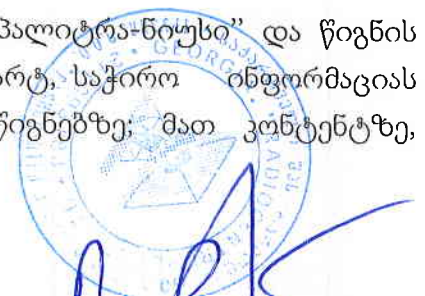 პალიტრა-ნიუსი” და წიგნის
არტ, საჭირო ინფორმაციას
წიგნებზე; მათ კონტენტზე,
GEORG
RADIO